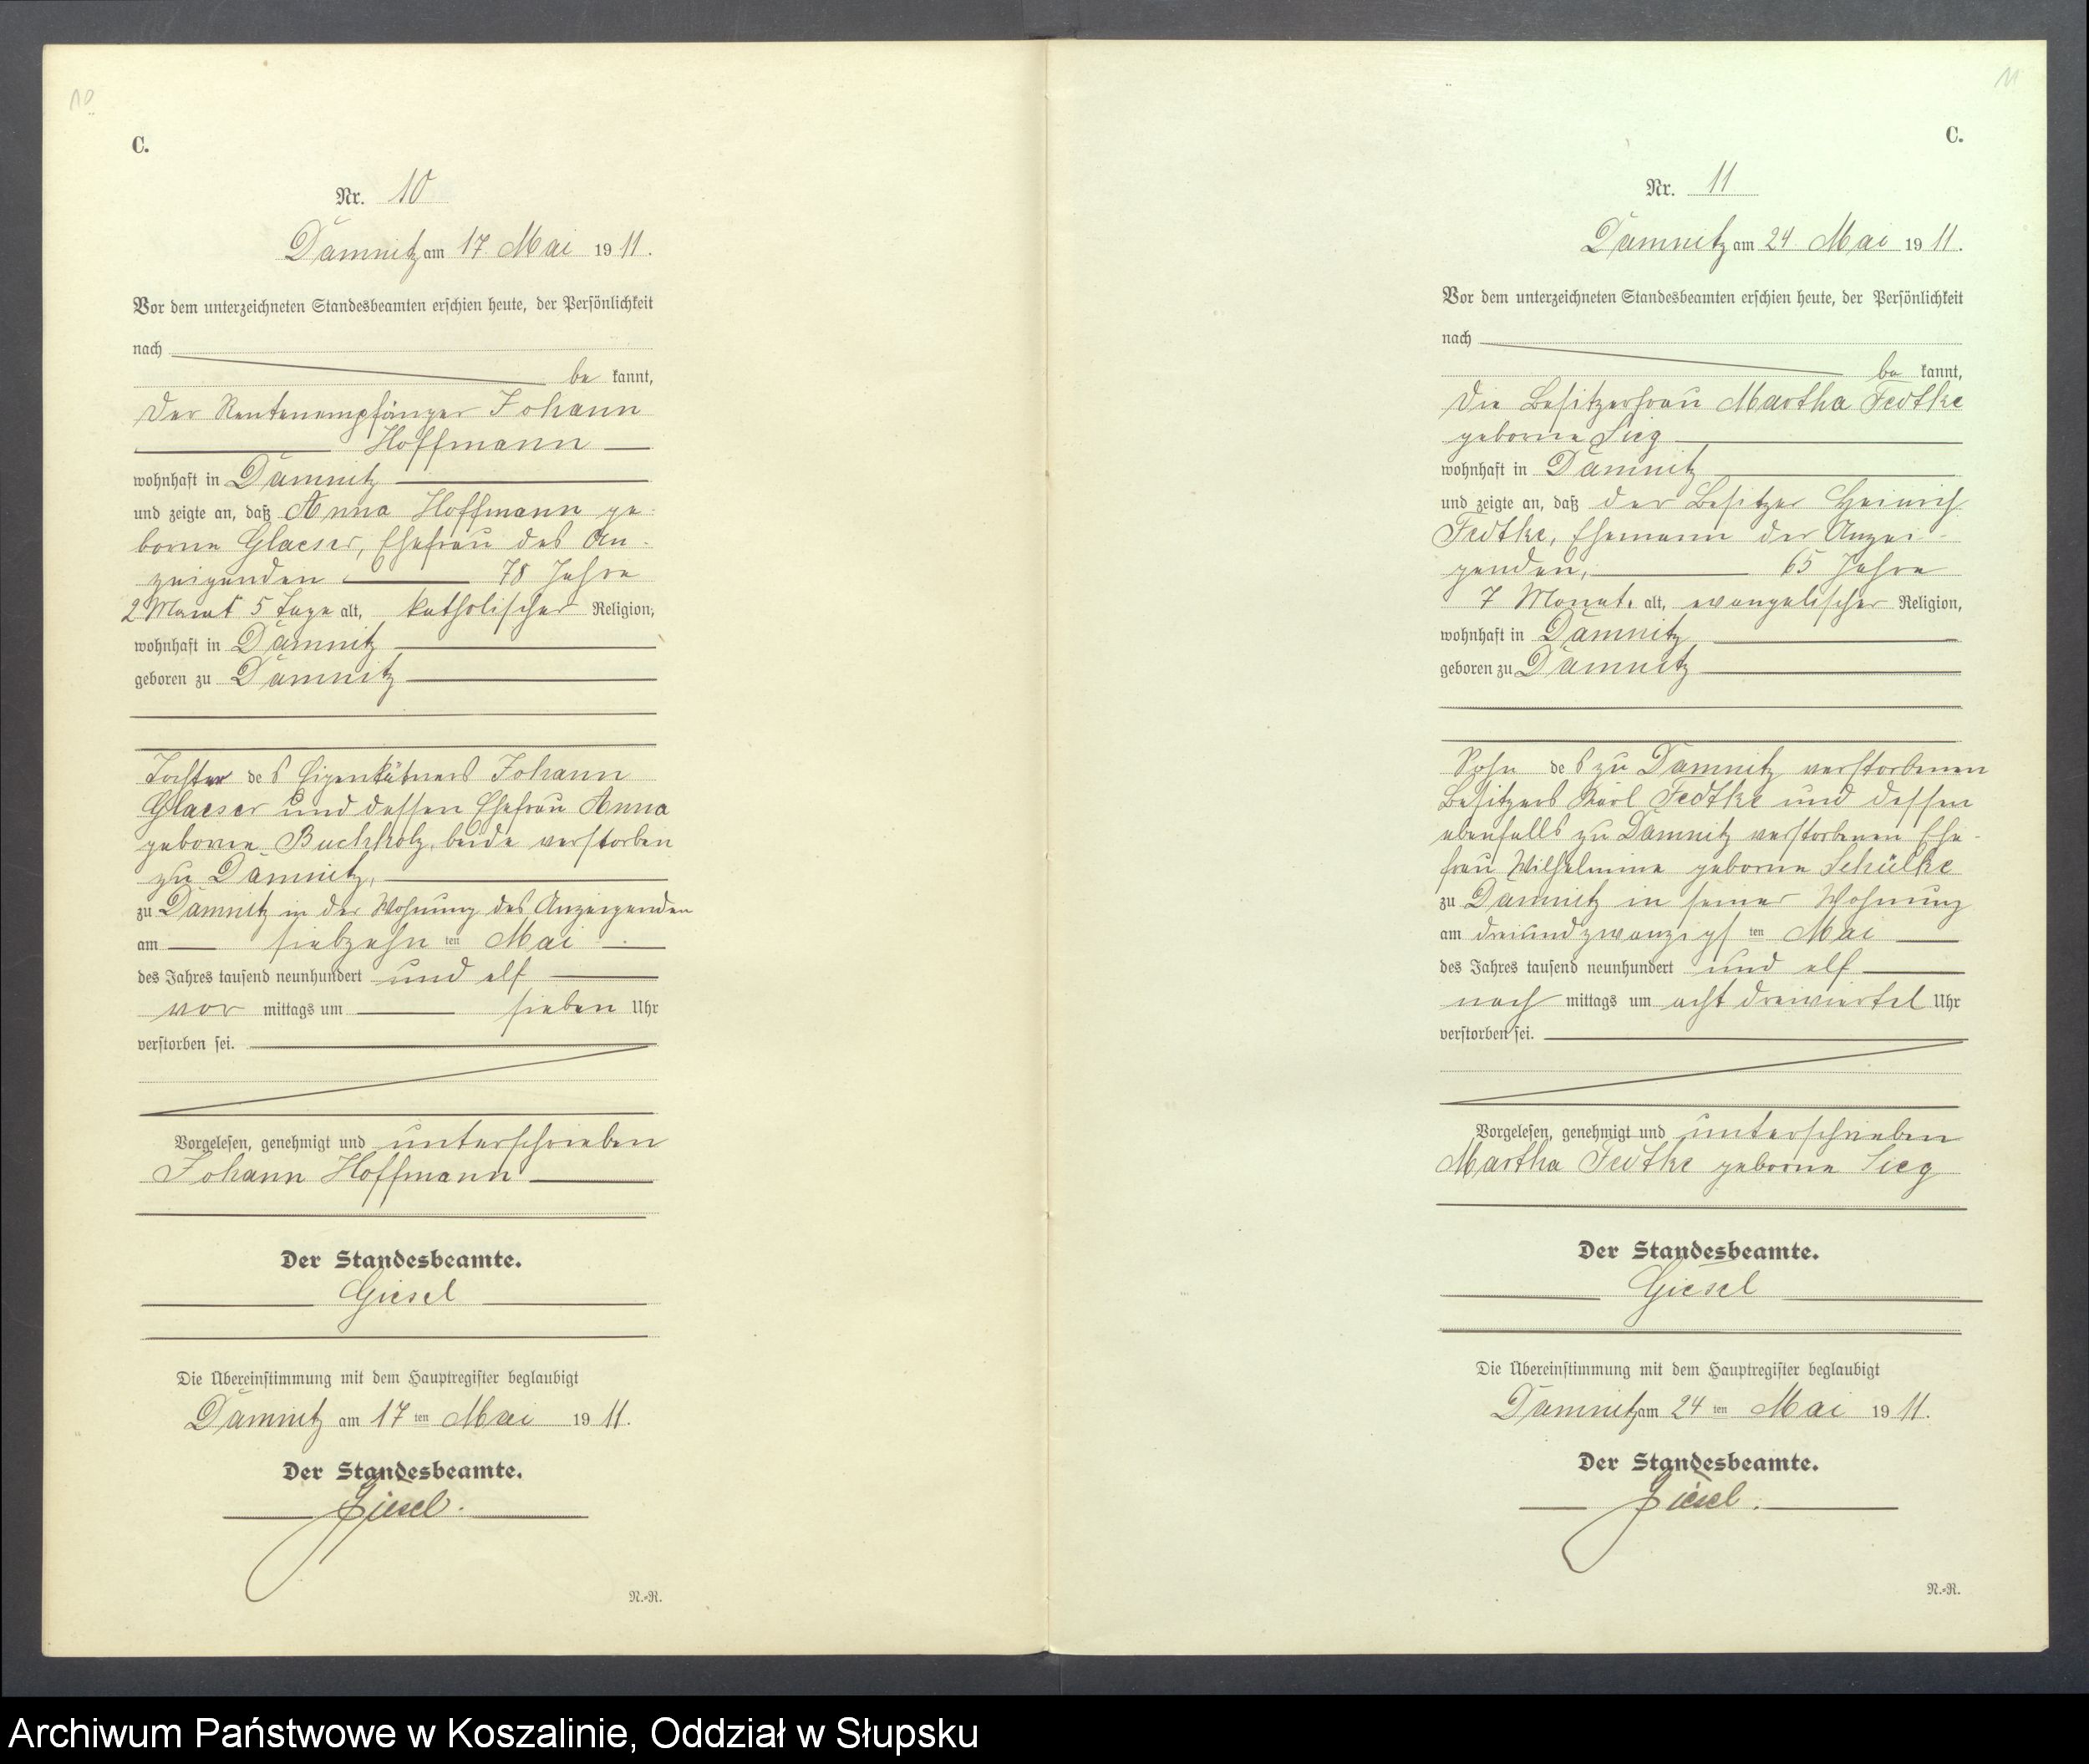 10
C.
Nr. 10
Damnitz am 17 Mai 1911.
Vor dem unterzeichneten Standesbeamten erschien heute, der Persönlichkeit
nach
be kannt,
der Rentenempfänger Johann
Hoffmann
wohnhaft in Damnitz
und zeigte an, daß Anna Hoffmann ge-
borne Glaeser, Ehefrau des An-
zeigenden 78 Jahre
2 Monat 5 Tage alt, katholischer Religion,
wohnhaft in Damnitz
geboren zu Damnitz
Tochter des Eigenkätners Johann
Glaeser und dessen Ehefrau Anna
geborne Buchholz, beide verstorben
zu Damnitz,
zu Damnitz in der Wohnung des Anzeigenden
am siebzehn ten Mai
des Jahres tausend neunhundert und elf
vor mittags um sieben Uhr
verstorben sei.
Vorgelesen, genehmigt und unterschrieben
Johann Hoffmann
Der Standesbeamte.
Giesel
Die Übereinstimmung mit dem Hauptregister beglaubigt
Damnitz am 17 ten Mai 1911.
Der Standesbeamte.
Giesel.
N.-R.
11
C.
Nr. 11
Damnitz am 24 Mai 1911.
Vor dem unterzeichneten Standesbeamten erschien heute, der Persönlichkeit
nach
be kannt,
die Besitzerfrau Martha Fedtke
geborne Sieg
wohnhaft in Damnitz
und zeigte an, daß der Besitzer Heinrich
Fedtke, Ehemann der Anzei-
genden, 65 Jahre
7 Monat. alt, evangelischer Religion,
wohnhaft in Damnitz
geboren zu Damnitz
Sohn des zu Damnitz verstorbenen
Besitzers Karl Fedtke und dessen
ebenfalls zu Damnitz verstorbenen Ehe-
frau Wilhelmine geborne Schülke
zu Damnitz in seiner Wohnung
am dreiundzwanzigs ten Mai
des Jahres tausend neunhundert und elf
nach mittags um acht dreiviertel Uhr
verstorben sei.
Vorgelesen, genehmigt und unterschrieben
Martha Fedtke geborne Sieg
Der Standesbeamte.
Giesel
Die Übereinstimmung mit dem Hauptregister beglaubigt
Damnitz am 24 ten Mai 1911.
Der Standesbeamte.
Giesel.
N.-R.
Archiwum Państwowe w Koszalinie, Oddział w Słupsku